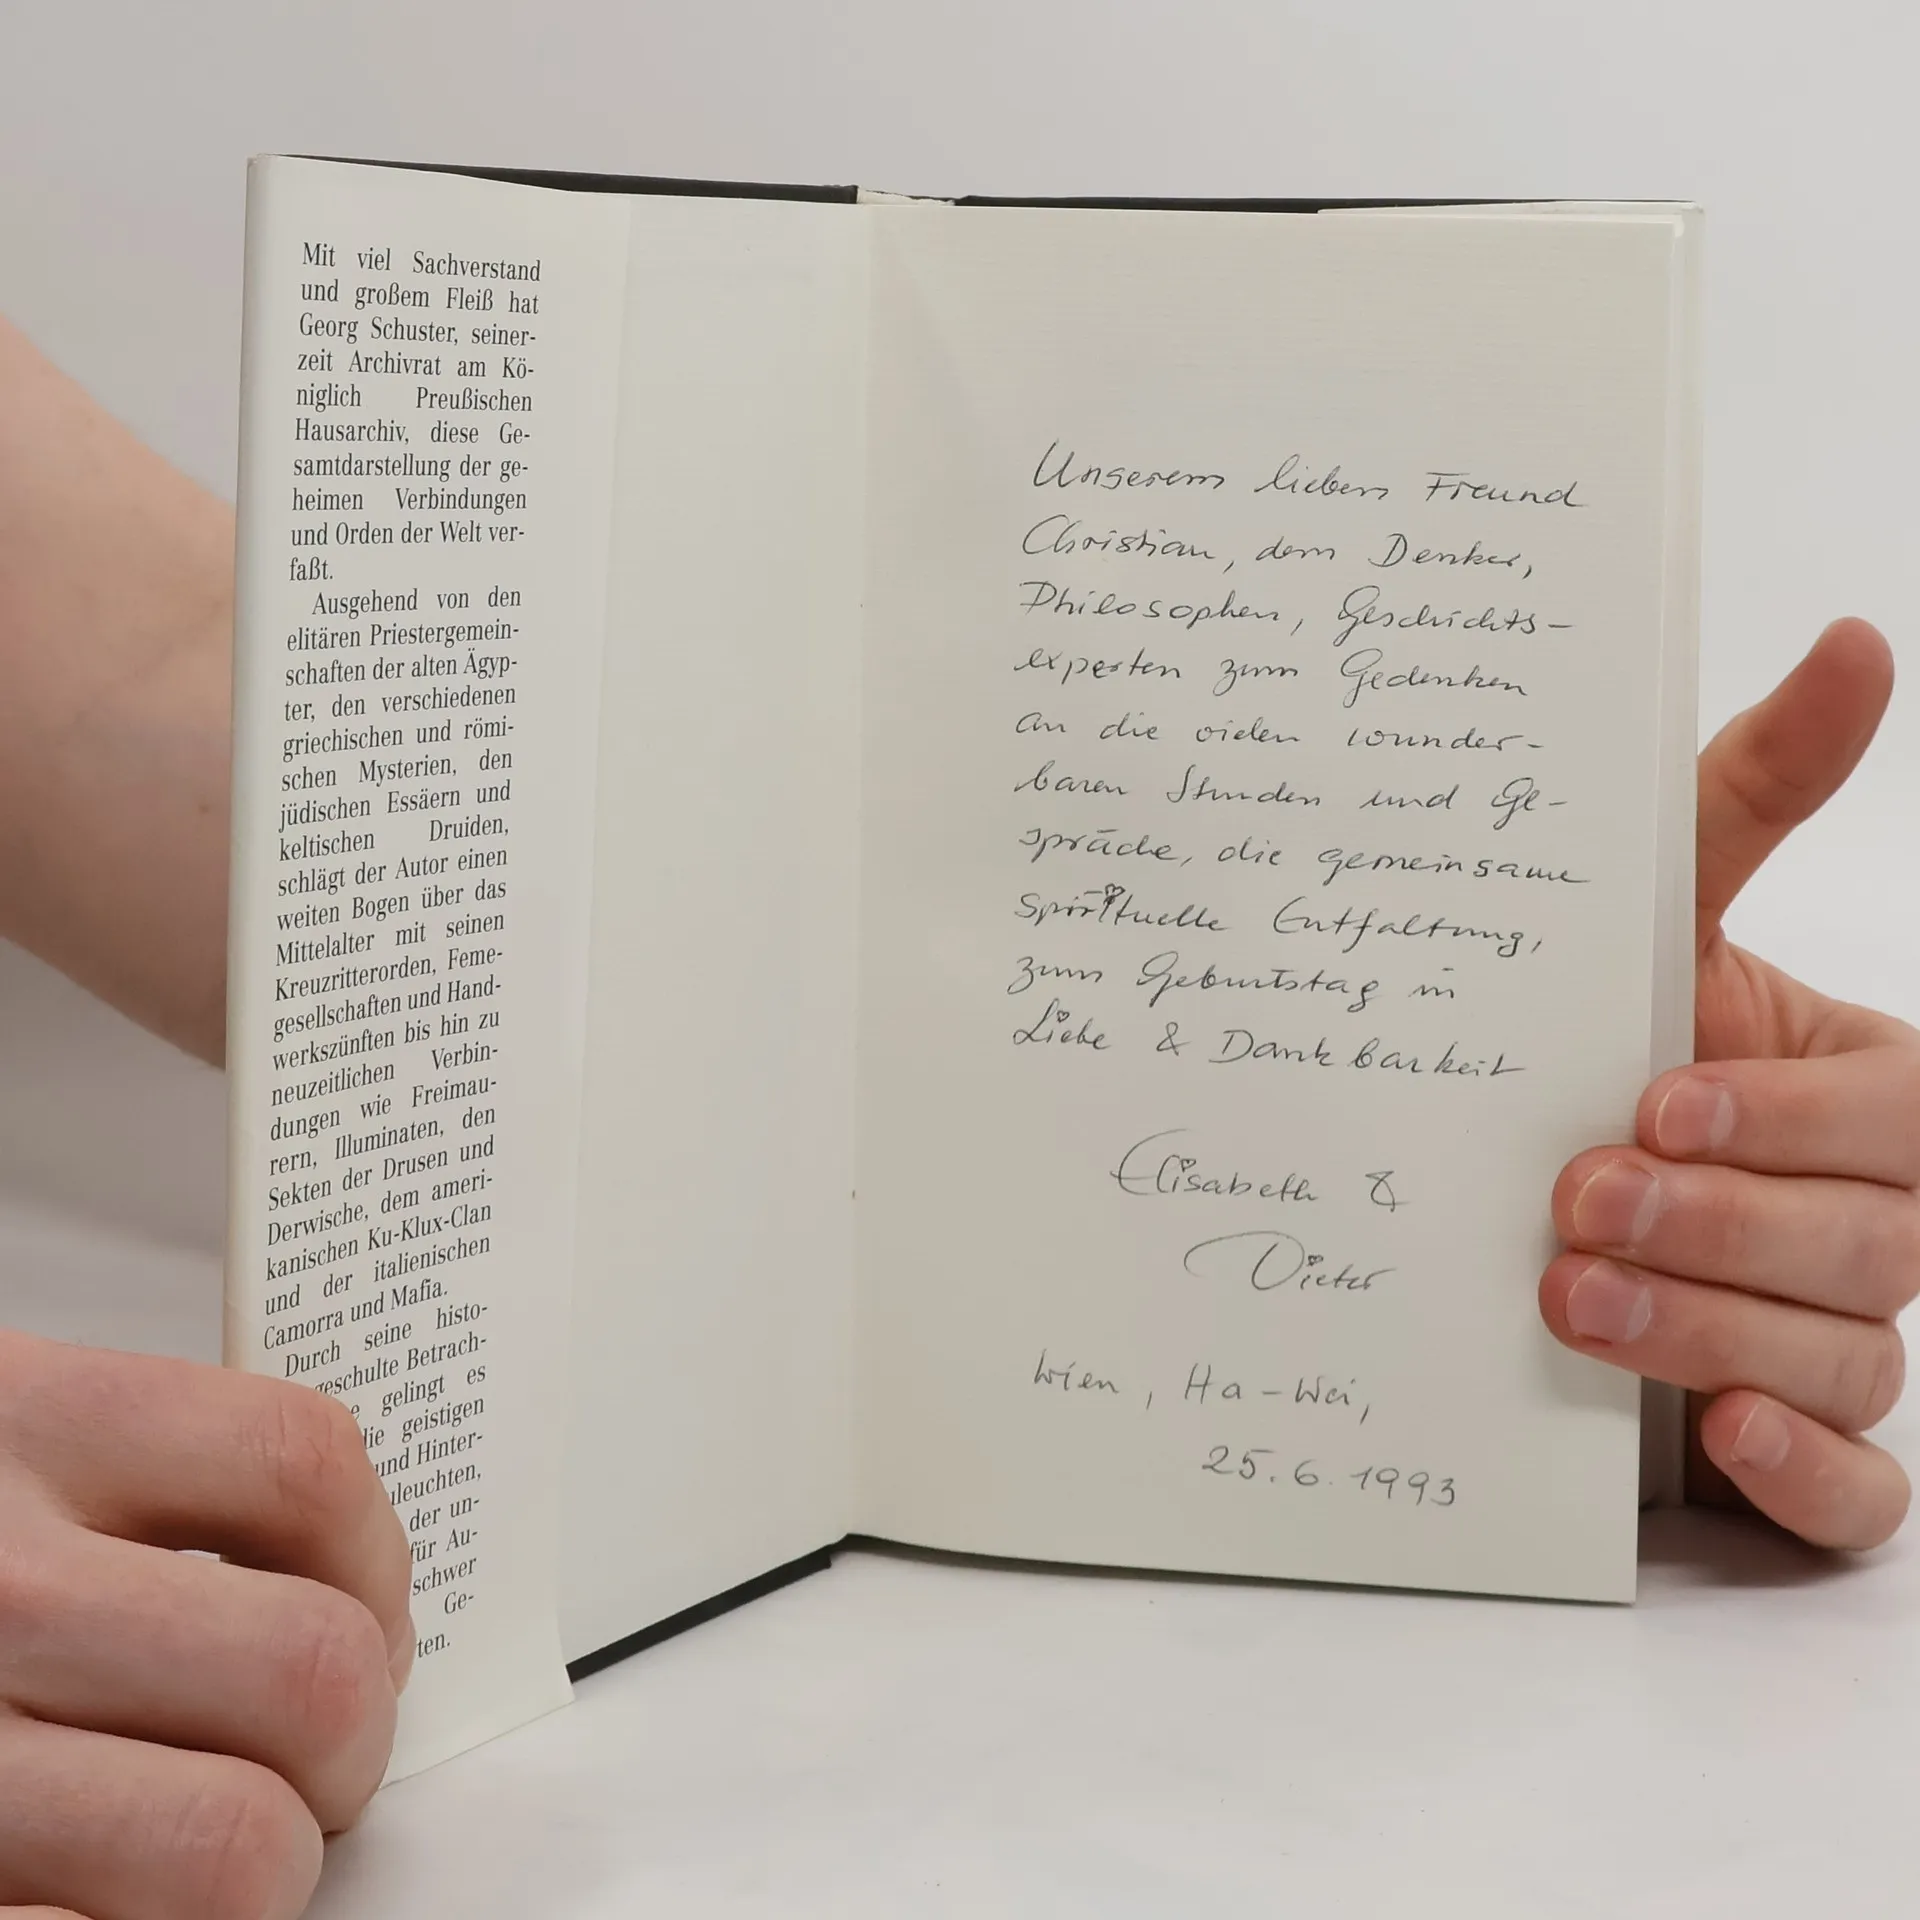 Mit viel Sachverstand
und großem Fleiß hat
Georg Schuster, seiner-
zeit Archivrat am Kö-
niglich Preußischen
Hausarchiv, diese Ge-
samtdarstellung der ge-
heimen Verbindungen
und Orden der Welt ver-
faßt.
Ausgehend von den
elitären Priestergemein-
schaften der alten Ägyp-
ter, den verschiedenen
griechischen und römi-
schen Mysterien, den
jüdischen Essäern und
keltischen Druiden,
schlägt der Autor einen
weiten Bogen über das
Mittelalter mit seinen
Kreuzritterorden, Feme-
gesellschaften und Hand-
werkszünften bis hin zu
neuzeitlichen Verbin-
dungen wie Freimau-
rern, Illuminaten, den
Sekten der Drusen und
Derwische, dem ameri-
kanischen Ku-Klux-Clan
und der italienischen
Camorra und Mafia.
Durch seine histo-
geschulte Betrach-
e gelingt es
die geistigen
und Hinter-
leuchten,
der un-
für Au-
schwer
Ge-
ten.
Unserem lieben Freund
Christian, dem Denker,
Philosophen, Geschichts-
experten zum Gedenken
an die vielen wunder-
baren Stunden und Ge-
spräche, die gemeinsame
spirituelle Entfaltung,
zum Geburtstag in
Liebe & Dankbarkeit
Elisabeth &
Dieter
Wien, Ha-Wei,
25.6.1993